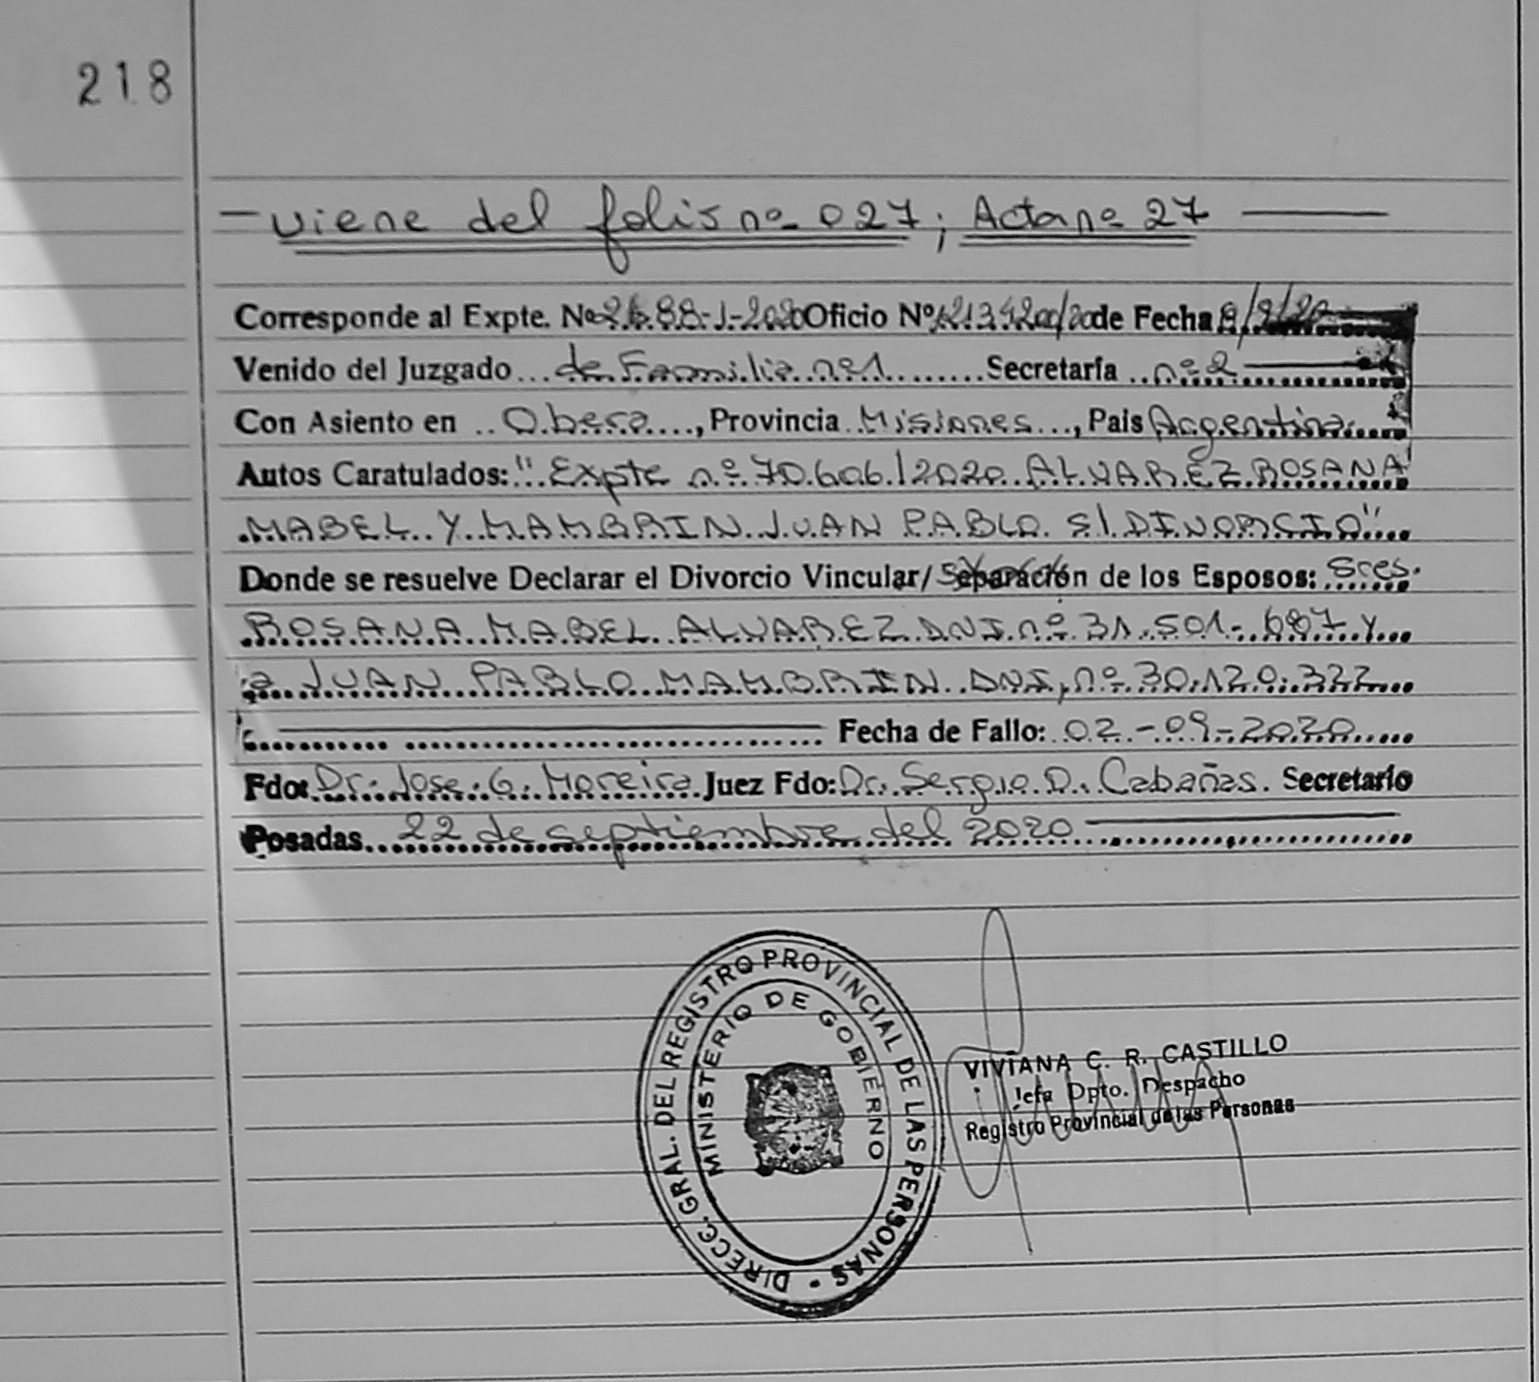 218
- viene del folio nº 027; Acta nº 27
Corresponde al Expte. Nº Oficio Nº de Fecha
Venido del Juzgado de Familia nº 1 Secretaría nº 2
Con Asiento en Obera, Provincia Misiones, Pais Argentina
Autos Caratulados: "Expte nº 70.606/2020 ALVAREZ ROSANA
MABEL Y MAMBRIN JUAN PABLO S/DIVORCIO"
Donde se resuelve Declarar el Divorcio Vincular/Separación de los Esposos: Sres.
ROSANA MABEL ALVAREZ DNI nº 31.501. Y
a JUAN PABLO MAMBRIN DNI, nº 30.120.322
Fecha de Fallo: 02-09-2020
Fdo: Dr. Jose G. Moreira Juez Fdo: Dr. Sergio D. Cabañas. Secretario
Posadas 22 de septiembre del 2020
DIRECC. GRAL. DEL REGISTRO PROVINCIAL DE LAS PERSONAS -
MINISTERIO DE GOBIERNO
VIVIANA C. R. CASTILLO
Jefa Dpto. Despacho
Registro Provincial de las Personas